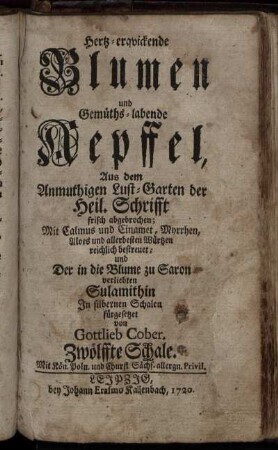 Hertz-erqvickende
Blumen
und
Gemüths-labende
Aepffel,
Aus dem
Anmuthigen Lust-Garten der
Heil. Schrifft
frisch abgebrochen;
Mit Calmus und Cinamet, Myrrhen,
Aloes und allerbesten Würtzen
reichlich bestreuet,
und
Der in die Blume zu Saron
verliebten
Sulamithin
In silbernen Schalen
fürgesetzet
von
Gottlieb Cober.
Zwölffte Schale.
Mit Kön. Poln. und Churfl. Sächs. allergn. Privil.
LEIPZIG,
bey Johann Erasmo Kallenbach, 1720.